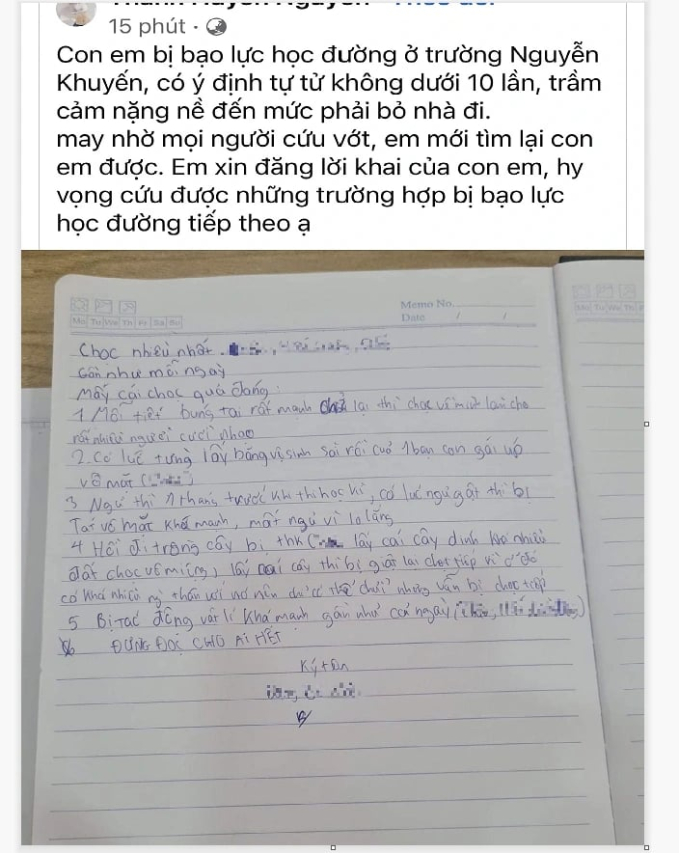 15 phút ·
Con em bị bạo lực học đường ở trường Nguyễn
Khuyến, có ý định tự tử không dưới 10 lần, trầm
cảm nặng nề đến mức phải bỏ nhà đi.
may nhờ mọi người cứu vớt, em mới tìm lại con
em được. Em xin đăng lời khai của con em, hy
vọng cứu được những trường hợp bị bạo lực
học đường tiếp theo ạ
Memo No.
Mo Tu We Th Fr Sa Su
Date / /
Chọc nhiều nhất
Gần như mỗi ngày
Mấy cái chọc quá đáng:
1 Mỗi tiết búng tai rất mạnh lại thì chọc làm cho
rất nhiều người cười nhạo
2. Có lúc từng lấy băng vệ sinh sài rồi của 1 bạn con gái úp
vô mặt
3 Ngủ thì 1 tháng trước khi thi học kì, có lúc ngủ gật thì bị
Tát vô mặt khá mạnh, mất ngủ vì lo lắng
4 Hồi đi trồng cây bị thk lấy cái cây dính khá nhiều
đất chọc vô miệng, lấy cái cây thì bị giật lại chọc tiếp vì ở đó
có khá nhiều ng thân với nó nên được thể nhưng vẫn bị chọc tiếp
5 Bị Tác động vật lí khá mạnh gần như cả ngày
6 ĐỪNG ĐỌC CHO AI HẾT
Ký tên